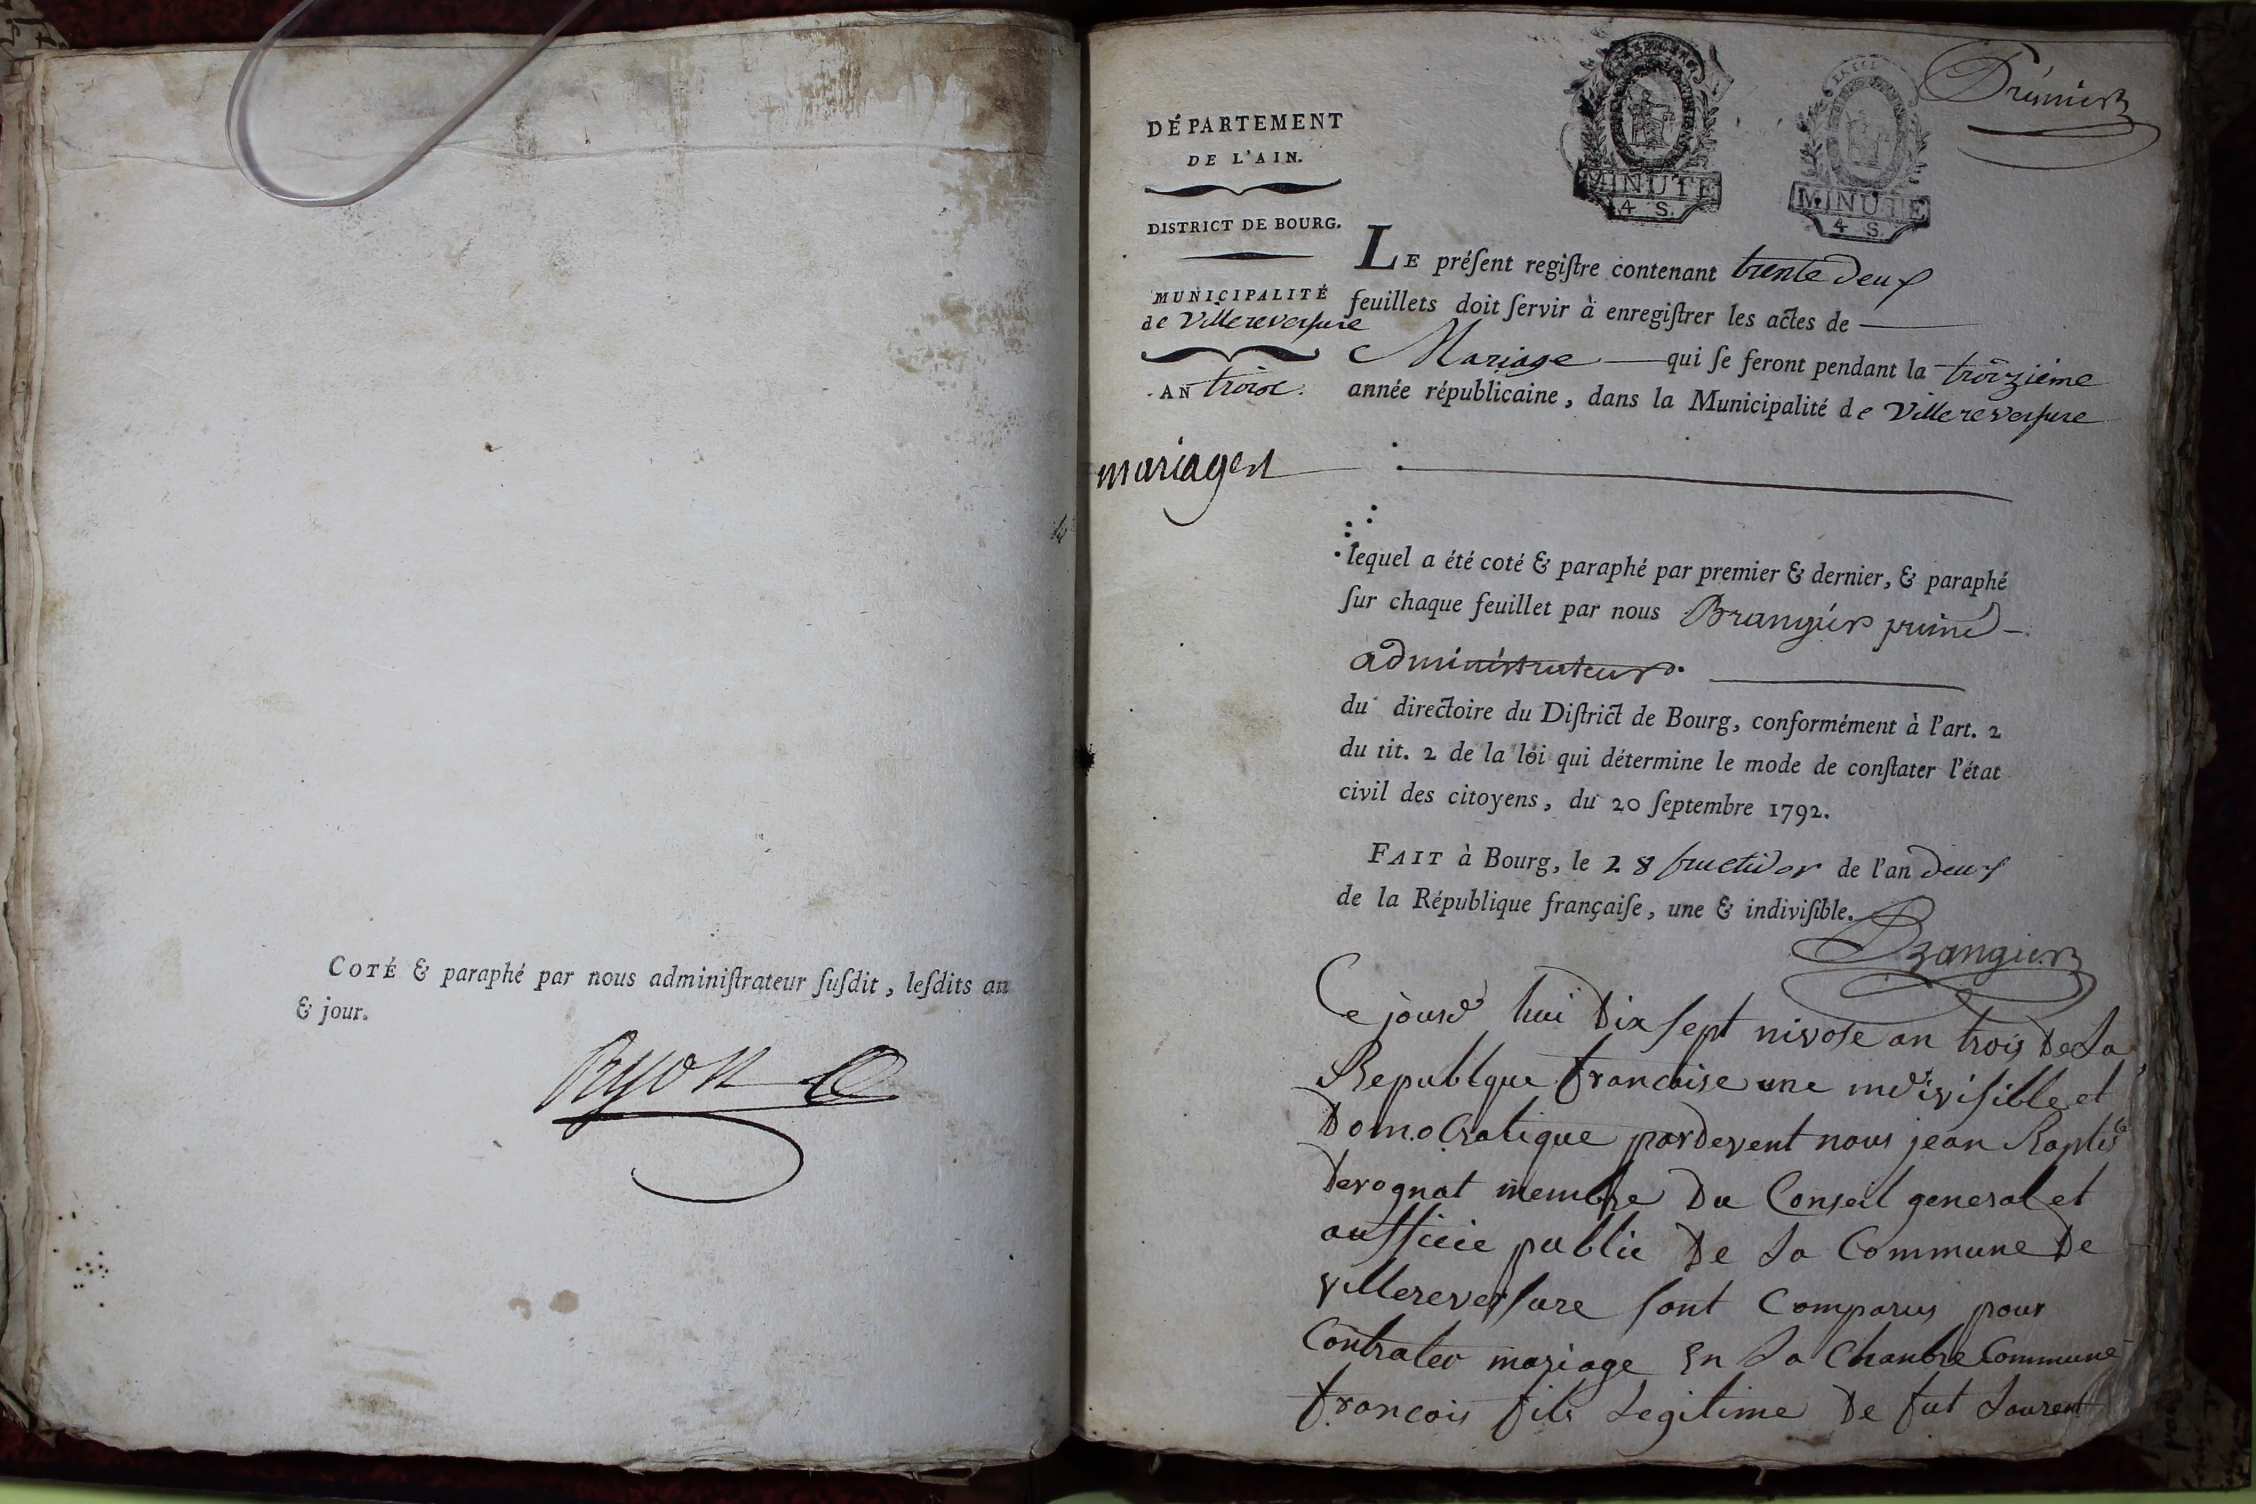 COTÉ & paraphé par nous administrateur susdit, lesdits an
& jour.
DÉPARTEMENT
DE L'AIN.
DISTRICT DE BOURG.
MUNICIPALITÉ
de Villereversure
AN trois.
mariages
MINUTE
4 S.
MINUTE
4 S.
Premier
LE présent registre contenant trente deux
feuillets doit servir à enregistrer les actes de
Mariage qui se feront pendant la troizième
année républicaine, dans la Municipalité de Villereversure
lequel a été coté & paraphé par premier & dernier, & paraphé
sur chaque feuillet par nous Brangier
administrateur
du directoire du District de Bourg, conformément à l'art. 2
du tit. 2 de la loi qui détermine le mode de constater l'état
civil des citoyens, du 20 septembre 1792.
FAIT à Bourg, le 28 fructidor de l'an deux
de la République française, une & indivisible.
Brangier
Ce jourd hui Dix sept nivose an trois De La
Republque francaise une indivisible et
Domocratique pardevent nous jean Baptis
Derognat membre Du Conseil general et
aufficie public De La Commune De
villereversure sont Comparus pour
Contrater mariage En La Chanbre Commune
francois fils Legitime De fut Laurent